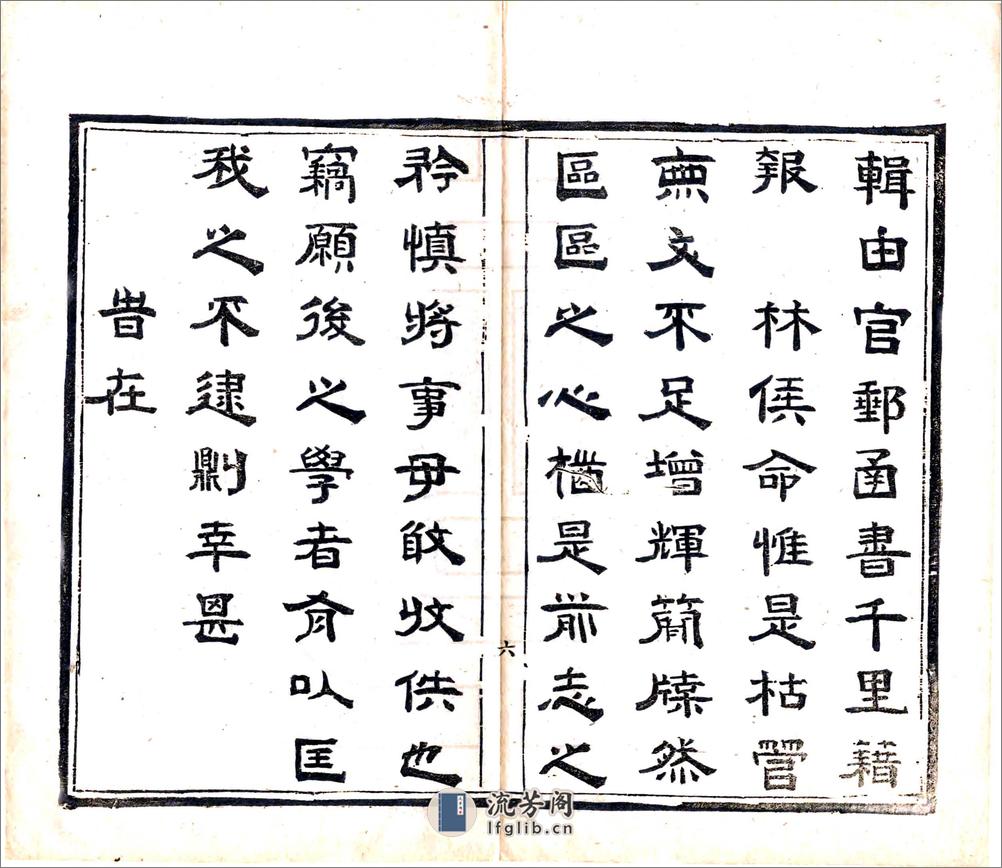 輯由官郵函書千里藉
報　林侯命惟是枯管
無文不足增輝簡牘然
區區之心猶是前志之
六
矜慎將事毋敢放佚也
竊願後之學者有以匡
我之不逮則幸甚
旹在
流芳阁
lfglib.cn